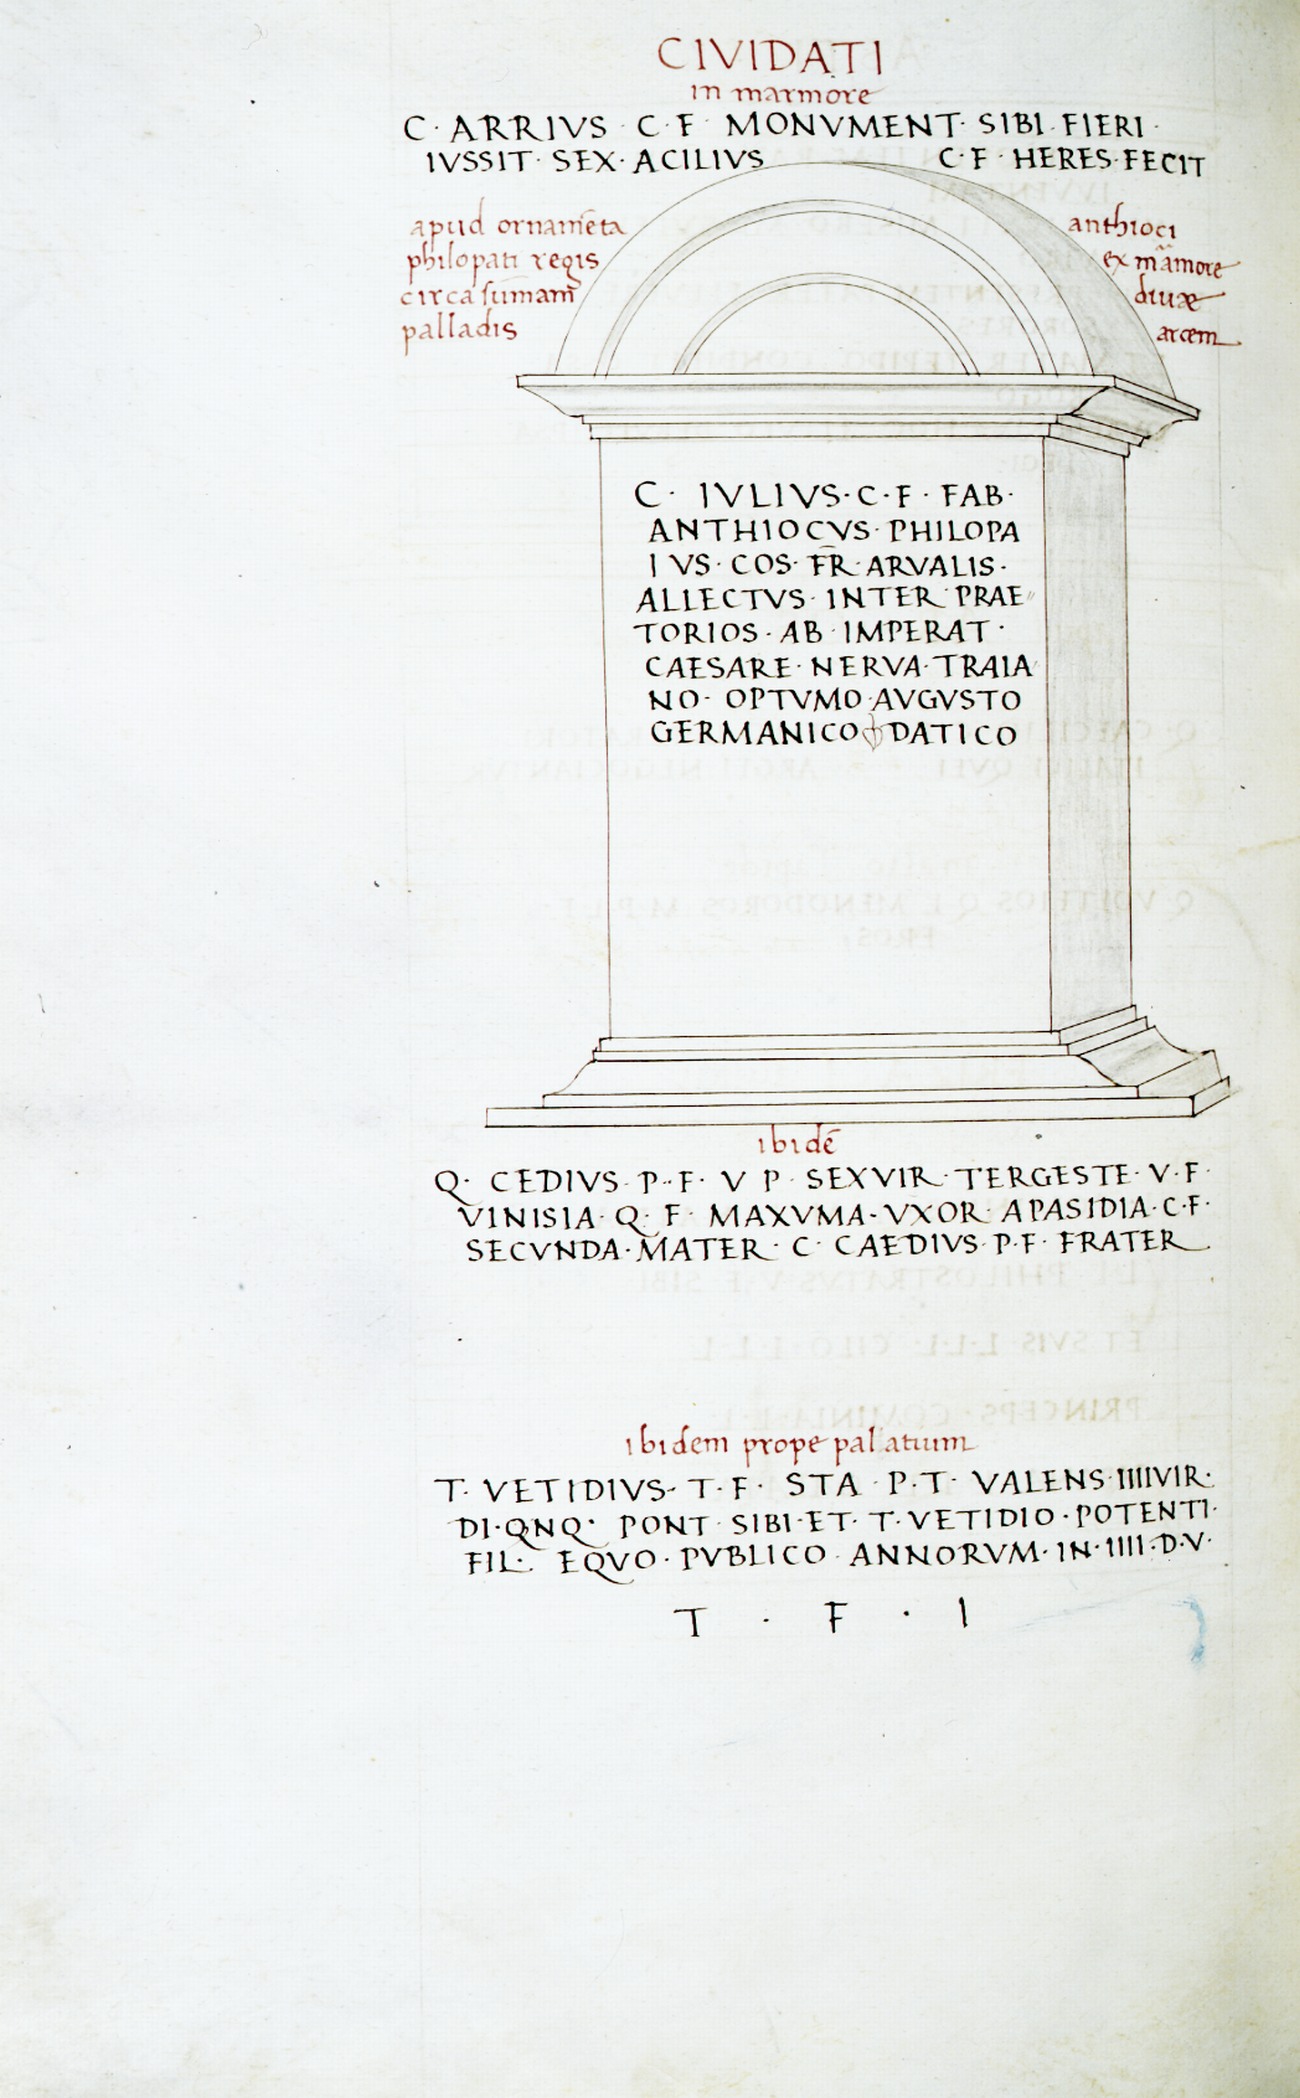 CIVIDATI
in marmore
C · ARRIVS · C · F · MONVMENT · SIBI · FIERI ·
IVSSIT · SEX · ACILIVS C · F · HERES · FECIT
apud ornam̄eta anthioci
philopati regis ex m̄amore
circa sumam̄ diuæ
palladis arcem
C · IVLIVS · C · F · FAB ·
ANTHIOCVS · PHILOPA
IVS · COS · F̄R · ARVALIS ·
ALLECTVS · INTER · PRAE〃
TORIOS · AB · IMPERAT ·
CAESARE · NERVA · TRAIA
NO · OPTVMO · AVGVSTO
GERMANICO ❦ DATICO
ibidē
Q · CEDIVS · P · F · V P · SEXVIR · TERGESTE · V · F ·
VINISIA · Q · F · MAXVMA · VXOR · APASIDIA · C · F ·
SECVNDA · MATER · C · CAEDIVS · P · F · FRATER
ibidem prope palatium
T · VETIDIVS · T · F · STA · P · T · VALENS · IIIIVIR ·
DI · QNQ · PONT · SIBI · ET · T · VETIDIO · POTENTI ·
FIL · EQVO · PVBLICO · ANNORVM · IN · IIII · D · V ·
T · F · I